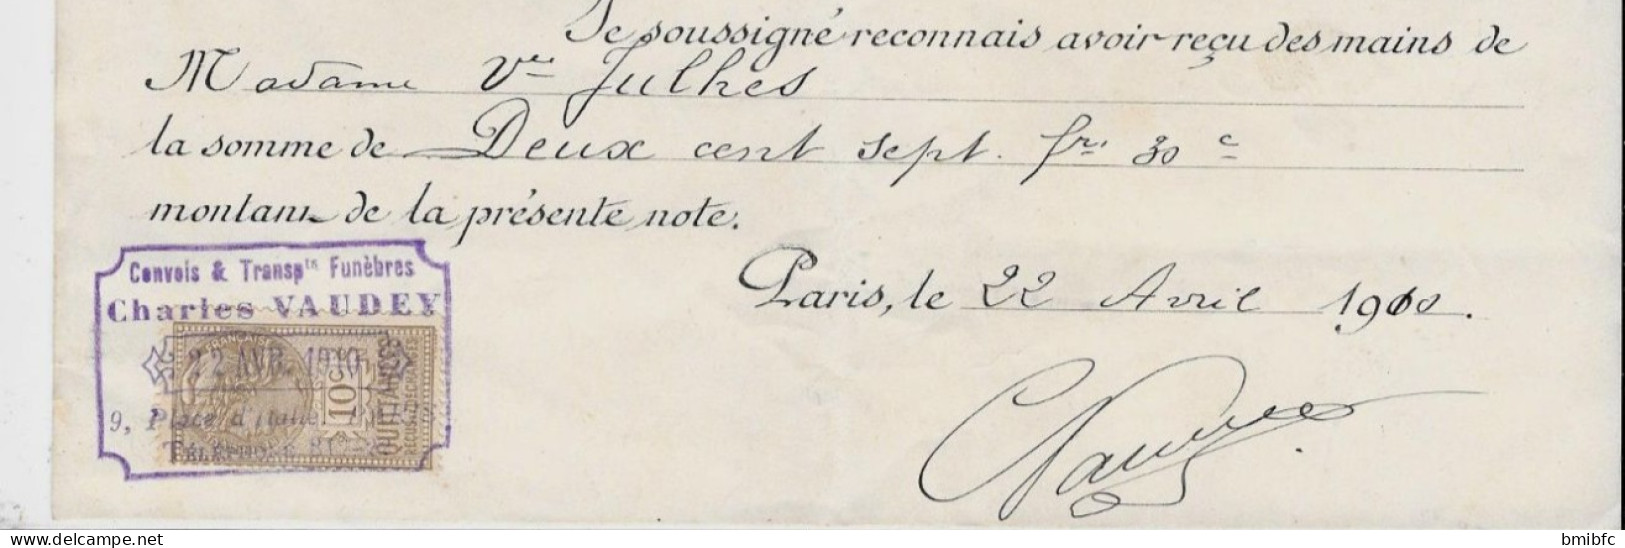 Je soussigné reconnais avoir reçu des mains de
Madame Vve Julhes
la somme de Deux cent sept fr. 30 c
montant de la présente note.
Paris, le 22 Avril 1910.
Convois & Transpts Funèbres
Charles VAUDEY
22 AVR. 1910
9, Place d'Italie
TÉLÉPHONE
FRANÇAISE
10c
QUITTANCES
REÇUS & DÉCHARGES
delcampe.net
bmibfc